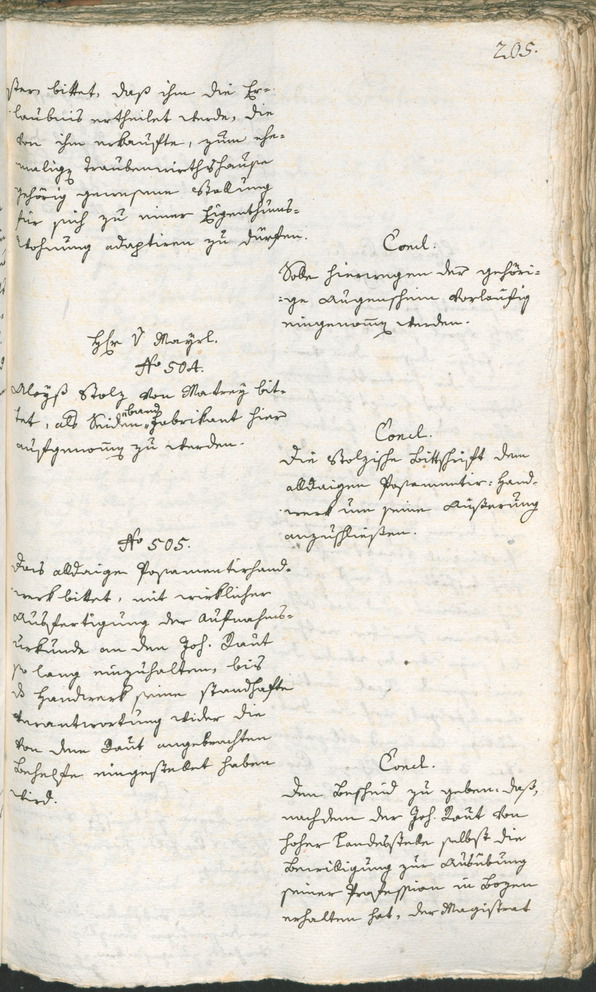 205.
ster, bittet, daß ihm die Er-
laubnis ertheilet werde, die
von ihm erkaufte, zum ehe-
maligen Traubenwirthshause
gehörig gewesene Stallung
für sich zu einer Eigenthums-
wohnung adaptiren zu dürfen.
Concl:
Solle hierwegen der gehöri-
ge Augenschein vorläufig
eingenommen werden.
Hr v Mayrl.
No 504.
Aloyß Stolz von Matrey bit-
tet, als Seidenband Fabrikant hier
aufgenommen zu werden.
Concl.
Die Stolzische Bittschrift dem
alldaigen Posamentir-Hand-
werk um seine Äußerung
anzuschließen.
No 505.
Das alldaige Posamentirhand-
werk bittet, mit wirklicher
Ausfertigung der Aufnahms-
urkunde an den Joh. Raut
so lang einzuhalten, bis
das Handwerk seine standhafte
Verantwortung wider die
von dem Raut angebrachten
Behelfe eingestellet haben
wird.
Concl.
Dem Bescheid zu geben: daß,
nachdem der Joh. Raut von
hoher Landesstelle selbst die
Bewilligung zur Ausübung
seiner Profession in Bozen
erhalten hat, der Magistrat